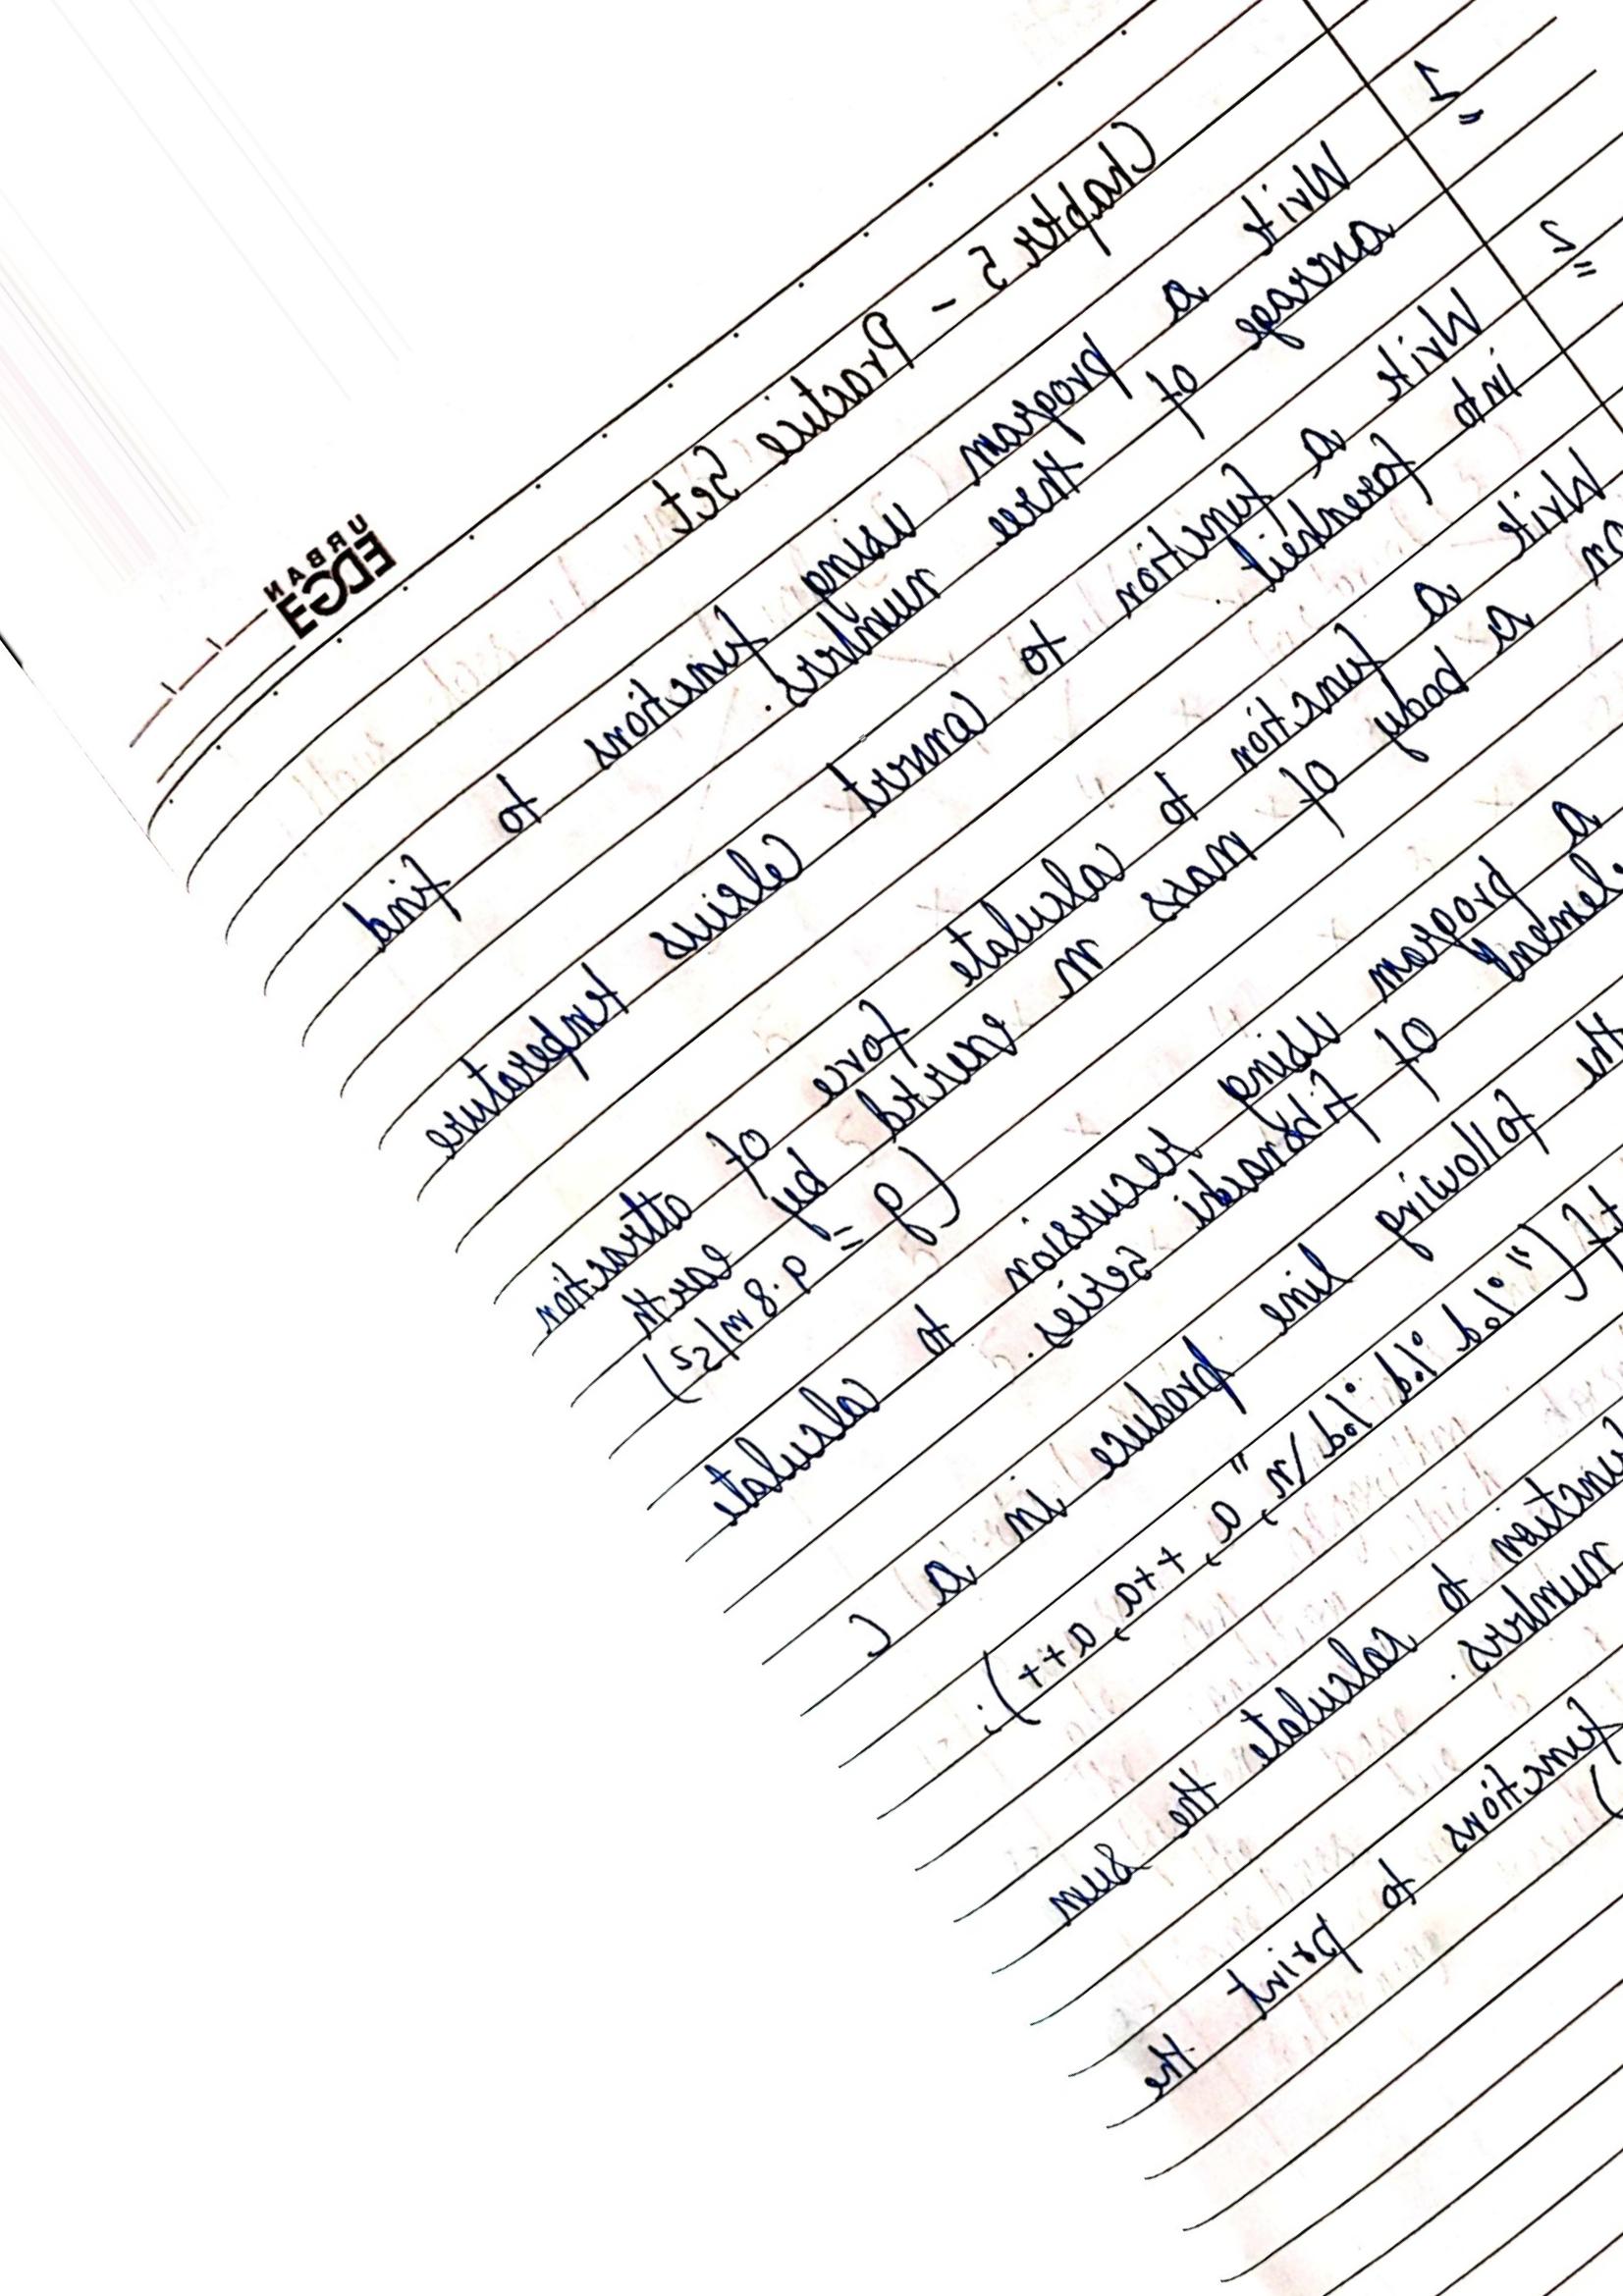 URBAN
EDGE
Chapter 5 - Practice Set
1 Write a program using functions to find
average of three numbers.
2 Write a function to convert celsius temperature
into
Write a function to calculate force of attraction
on a body of mass m exerted by earth
(g = 9.8 m/s2)
a program using recursion to calculate
of fibonacci series.
the following line produce in a C
f("%d %d %d \n", a, ++a, a++);
to calculate the sum
numbers.
functions to print the
)